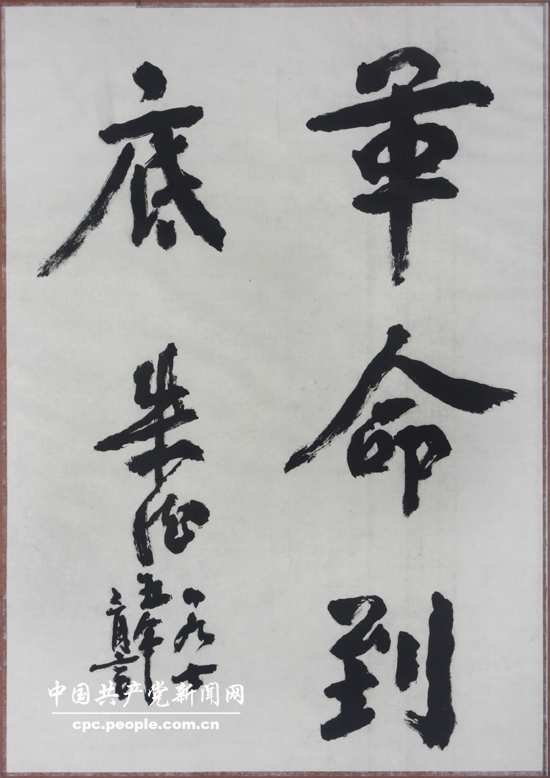 革命到
底 朱德
一九七
五年
中国共产党新闻网
cpc.people.com.cn